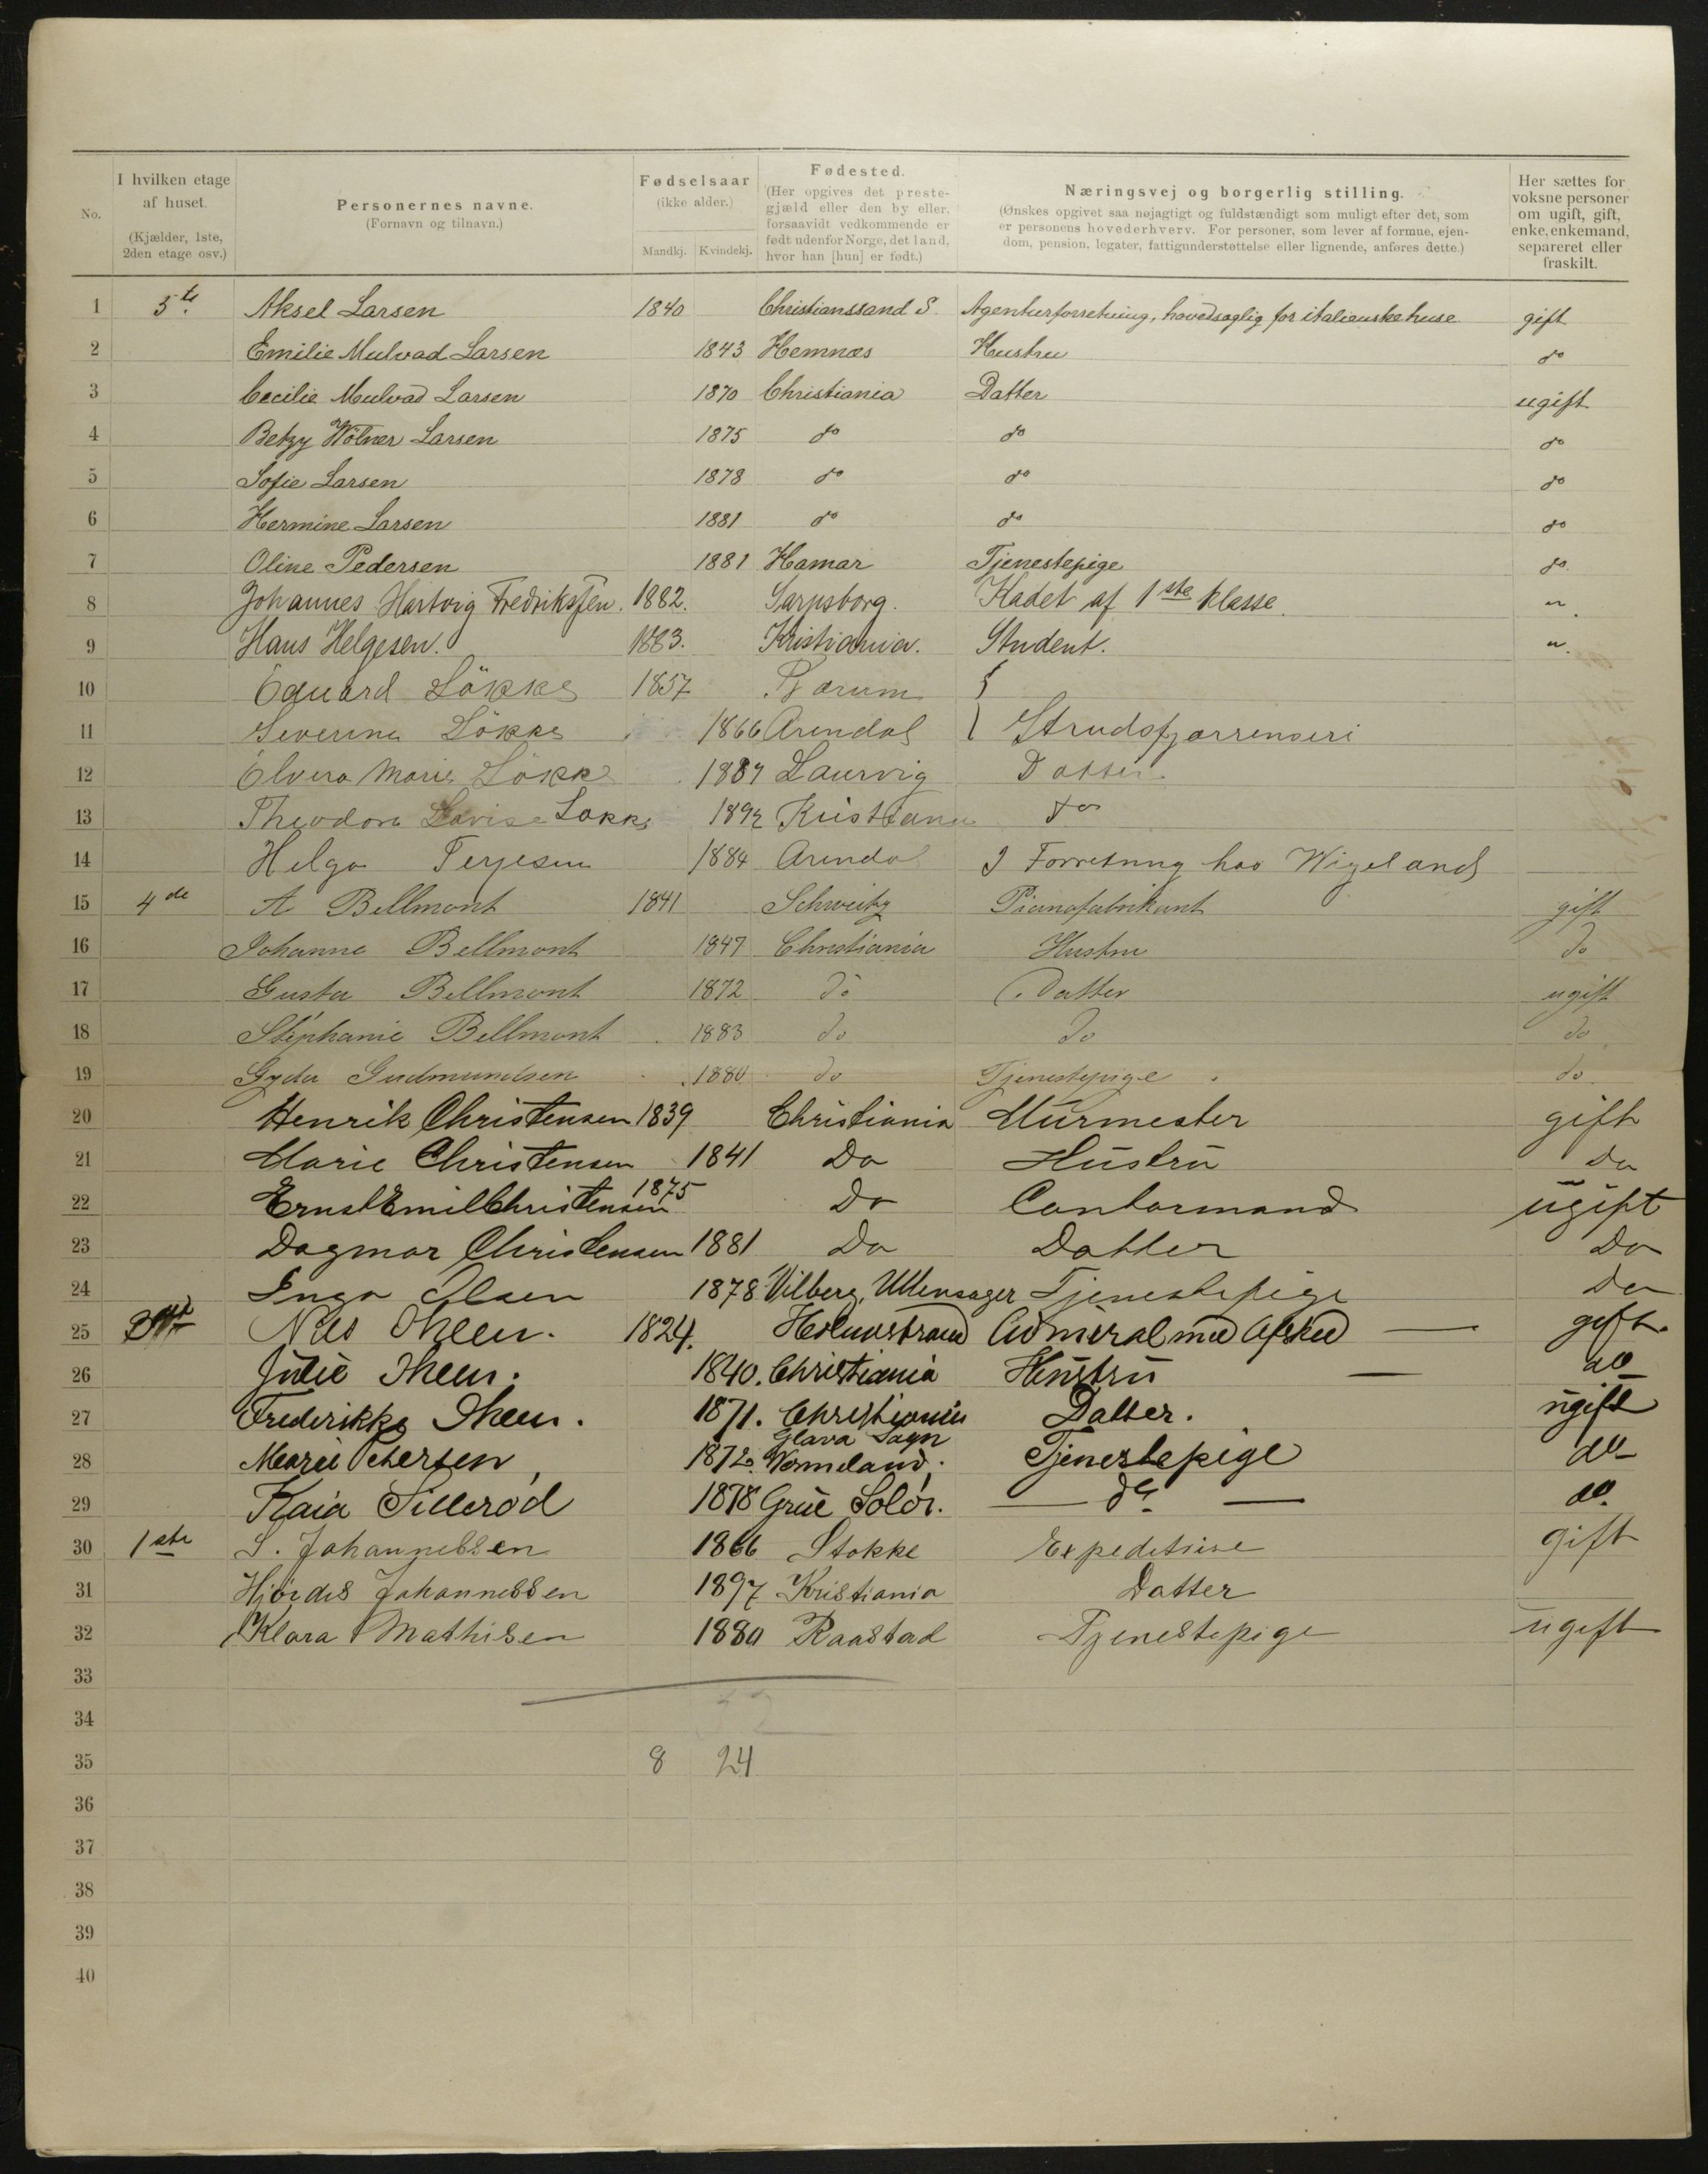 No.
I hvilken etage af huset. (Kjælder, 1ste, 2den etage osv.)
Personernes navne. (Fornavn og tilnavn.)
Fødselsaar (ikke alder.) Mandkj. Kvindekj.
Fødested. (Her opgives det prestegjæld eller den by eller, forsaavidt vedkommende er født udenfor Norge, det land, hvor han [hun] er født.)
Næringsvej og borgerlig stilling. (Ønskes opgivet saa nøjagtigt og fuldstændigt som muligt efter det, som er personens hovederhverv. For personer, som lever af formue, ejendom, pension, legater, fattigunderstøttelse eller lignende, anføres dette.)
Her sættes for voksne personer om ugift, gift, enke, enkemand, separeret eller fraskilt.
1 5te Aksel Larsen 1840 Christianssand S. Agenturforretning, hovedsaglig for italienske huse gift
2 Emilie Mulvad Larsen 1843 Hemnæs Hustru do
3 Cecilie Mulvad Larsen 1870 Christiania Datter ugift
4 Betzy Wölner Larsen 1875 do do do
5 Sofie Larsen 1878 do do do
6 Hermine Larsen 1881 do do do
7 Oline Pedersen 1881 Hamar Tjenestepige do
8 Johannes Hartvig Fredriksen. 1882. Sarpsborg. Kadet af 1ste klasse. "
9 Hans Helgesen. 1883. Kristiania. Student. "
10 Edvard Lökke 1857 Bærum {
11 Severine Lökke 1866 Arendal Strudsfjærrenseri
12 Elvera Marie Lökke 1889 Laurvig Datter
13 Theodora Lovise Lökke 1892 Kristiania do
14 Helga Terjesen 1884 Arendal I Forretning hos Wigelands
15 4de A Bellmont 1841 Schweitz Pianofabrikant gift
16 Johanne Bellmont 1847 Christiania Hustru do
17 Gusta Bellmont 1872 do Datter ugift
18 Stéphanie Bellmont 1883 do do do
19 Gyda Gudmundsen 1880 do Tjenestepige do
20 Henrik Christensen 1839 Christiania Murmester gift
21 Marie Christensen 1841 Do Hustru do
22 Ernst Emil Christensen 1875 Do Contormand ugift
23 Dagmar Christensen 1881 Do Datter Do
24 Inga Olsen 1878 Vilberg, Ullensager Tjenestepige Do
25 Nils Ihlen. 1824. Holmestrand Admiral med Afsked gift.
26 Julie Ihlen. 1840. Christiania Hustru do
27 Frederikke Ihlen. 1871. Christiania Datter. ugift
28 Marie Petersen, 1872. Glava Sogn Vermeland. Tjenestepige do
29 Kaia Sillerød 1878 Grue Solør. do do.
30 1ste S. Johannessen 1866 Stokke Expeditrise gift
31 Hjørdis Johannessen 1897 Kristiania Datter
32 Klara Mathisen 1880 Raastad Tjenestepige ugift
33
34 32
35 8 24
36
37
38
39
40